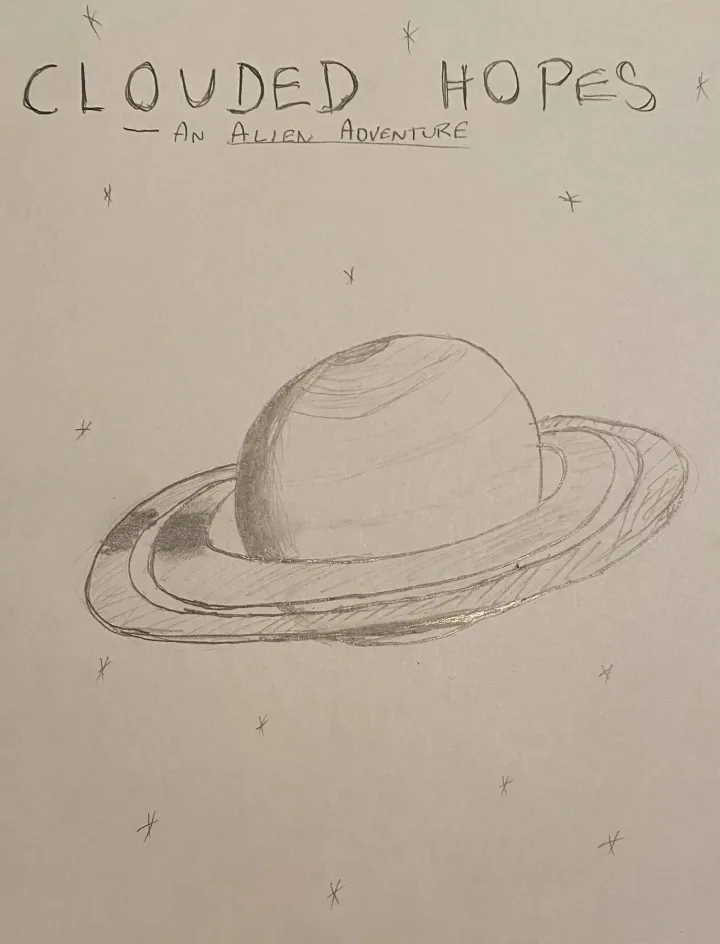 CLOUDED HOPES
— AN ALIEN ADVENTURE